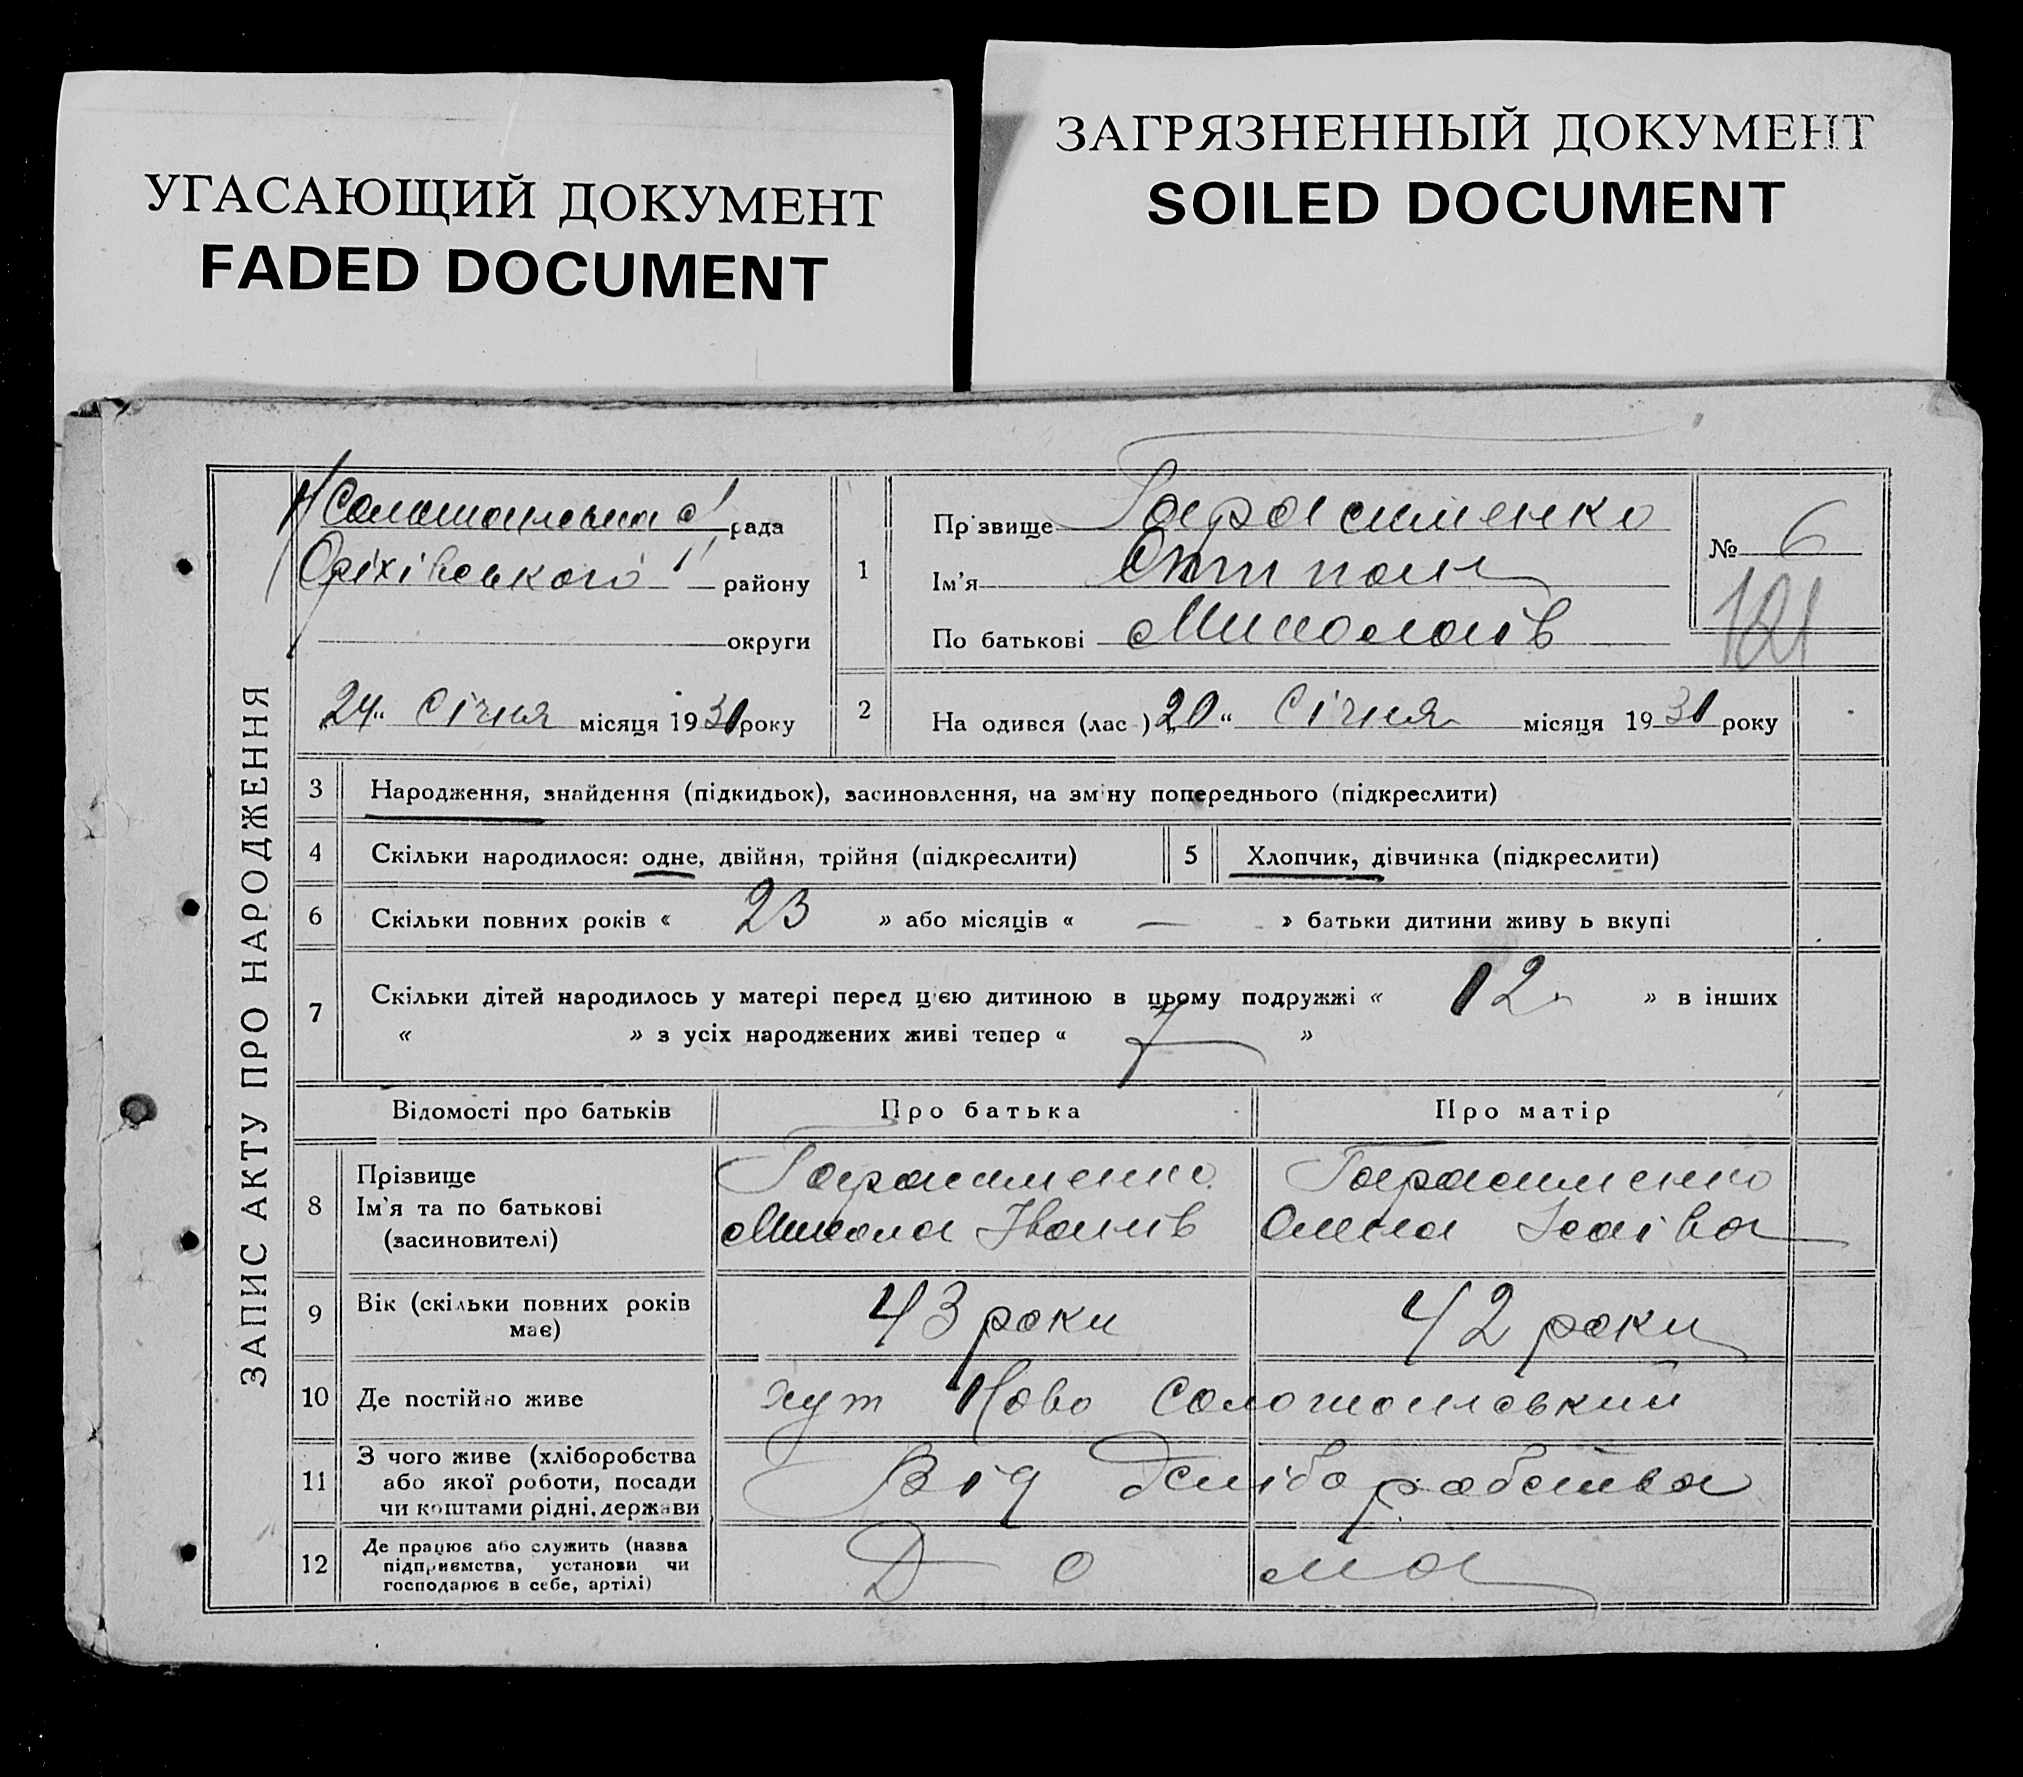 УГАСАЮЩИЙ ДОКУМЕНТ
FADED DOCUMENT
ЗАГРЯЗНЕННЫЙ ДОКУМЕНТ
SOILED DOCUMENT
ЗАПИС АКТУ ПРО НАРОДЖЕННЯ
рада
Оріхівського району
округи
„24“ Січня місяця 1931 року
1
Прізвище Гарасименко
Ім'я Антпон
По батькові Миколаїв
№ 6
121
2 На одився (лас ) „20“ Січня місяця 1931 року
3 Народження, знайдення (підкидьок), засиновлення, на зміну попереднього (підкреслити)
4 Скільки народилося: одне, двійня, трійня (підкреслити)
5 Хлопчик, дівчинка (підкреслити)
6 Скільки повних років « 23 » або місяців « — » батьки дитини живу ь вкупі
7 Скільки дітей народилось у матері перед цією дитиною в цьому подружжі « 12 » в інших
« » з усіх народжених живі тепер « 7 »
Відомості про батьків Про батька Про матір
8 Прізвище
Ім'я та по батькові
(засиновителі)
Гарасименко
Микола Іванів
Гарасименко
Олена Ісаівна
9 Вік (скільки повних років
має)
43 роки 42 роки
10 Де постійно живе хут Ново Солошанський
11 З чого живе (хліборобства
або якої роботи, посади
чи коштами рідні, держави
Від
12 Де працює або служить (назва
підприємства, установи чи
господарює в себе, артілі)
Дома